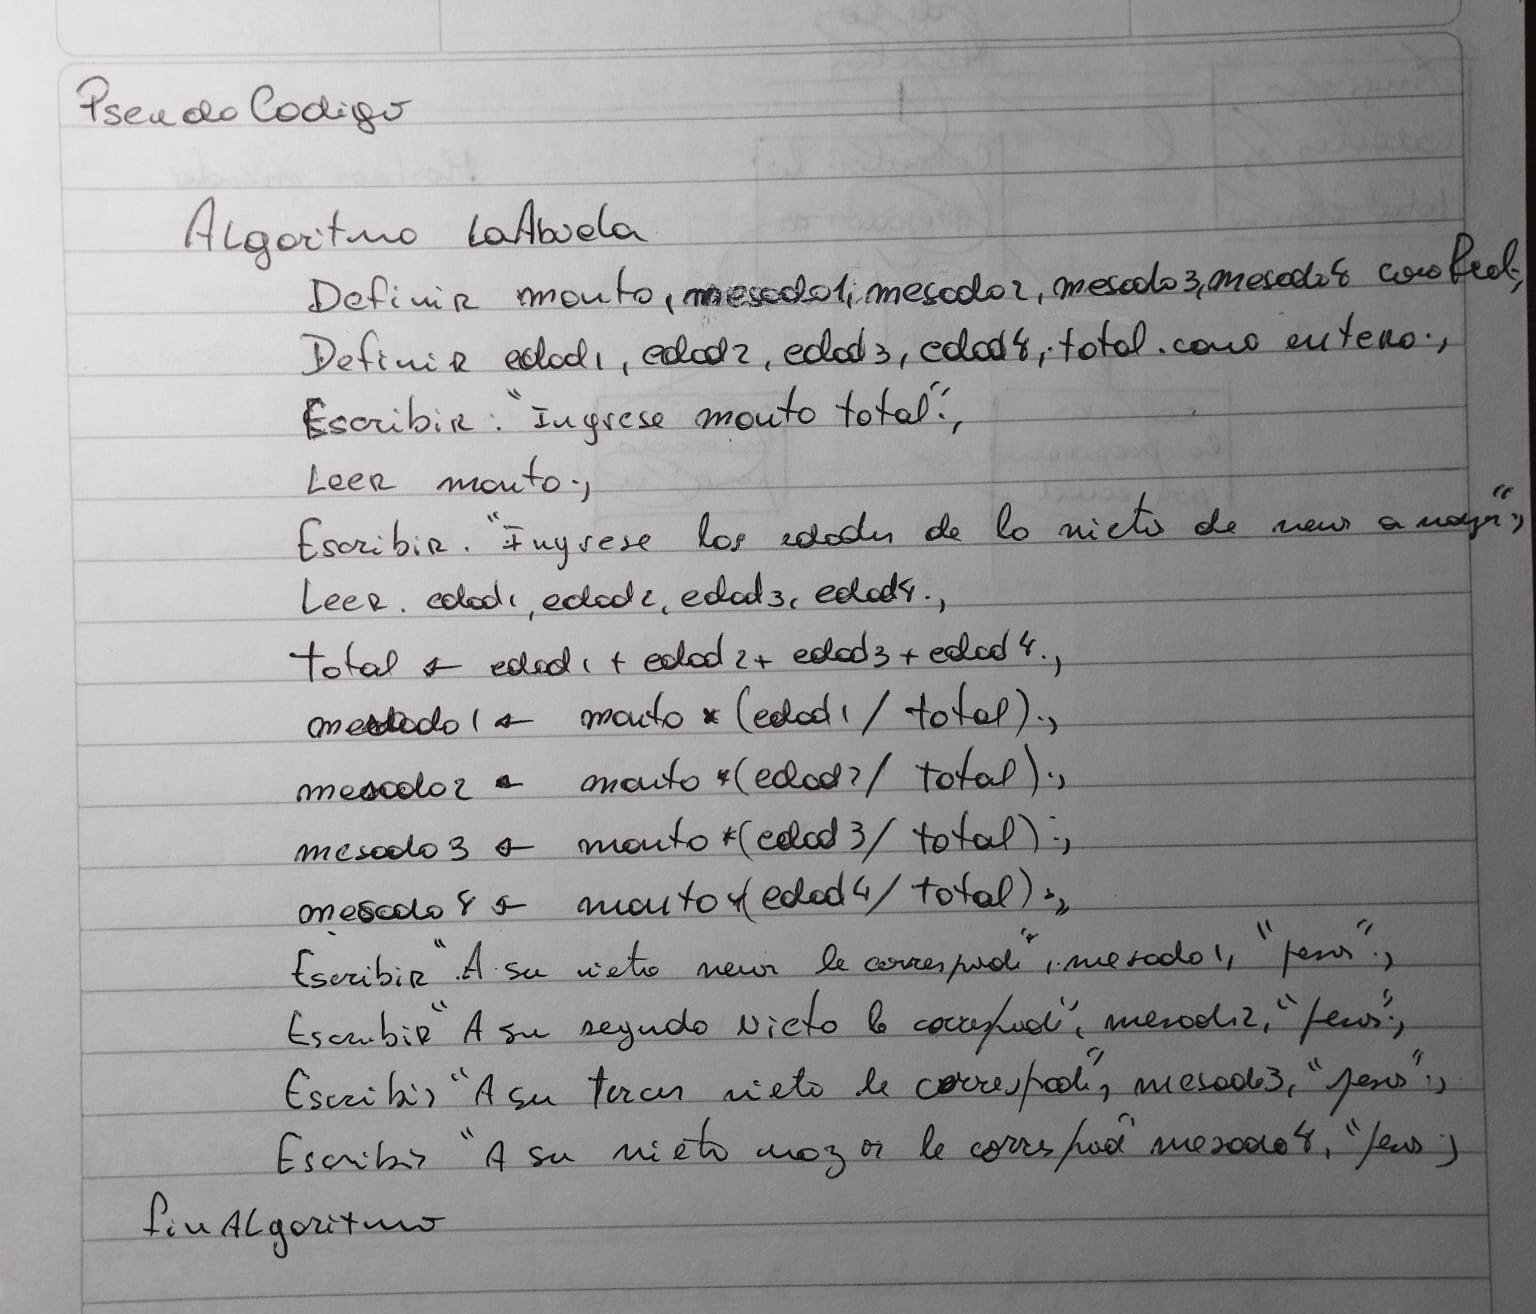 PseudoCodigo
Algoritmo LaAbuela
Definir monto, mesada1, mesada2, mesada3, mesada4 como Real;
Definir edad1, edad2, edad3, edad4, total como entero;
Escribir: "Ingrese monto total";
Leer monto;
Escribir. "Ingrese las edades de lo nieto de menor a mayor";
Leer. edad1, edad2, edad3, edad4;
total ← edad1 + edad2 + edad3 + edad4;
mesada1 ← monto * (edad1 / total);
mesada2 ← monto * (edad2 / total);
mesada3 ← monto * (edad3 / total);
mesada4 ← monto * (edad4 / total);
Escribir "A su nieto menor le corresponde", mesada1, "pesos";
Escribir "A su segundo Nieto le corresponde", mesada2, "pesos";
Escribir "A su tercer nieto le corresponde", mesada3, "pesos";
Escribir "A su nieto mayor le corresponde" mesada4, "pesos;
finALgoritmo